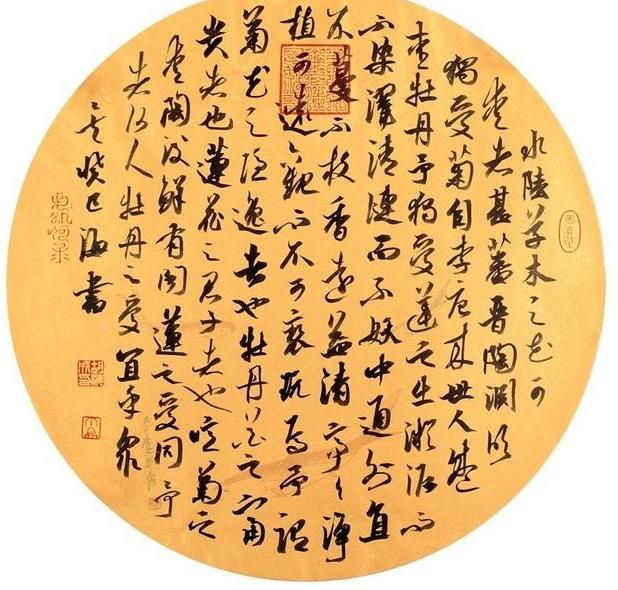 水陸草木之花可
愛者甚蕃晉陶淵明
獨愛菊自李唐來世人盛
愛牡丹予獨愛蓮之出淤泥而
不染濯清漣而不妖中通外直
不蔓不枝香遠益清亭亭淨
植可遠觀而不可褻玩焉予謂
菊花之隱逸者也牡丹花之富
貴者也蓮花之君子者也噫菊之
愛陶後鮮有聞蓮之愛同予
者何人牡丹之愛宜乎眾
矣癸巳海書